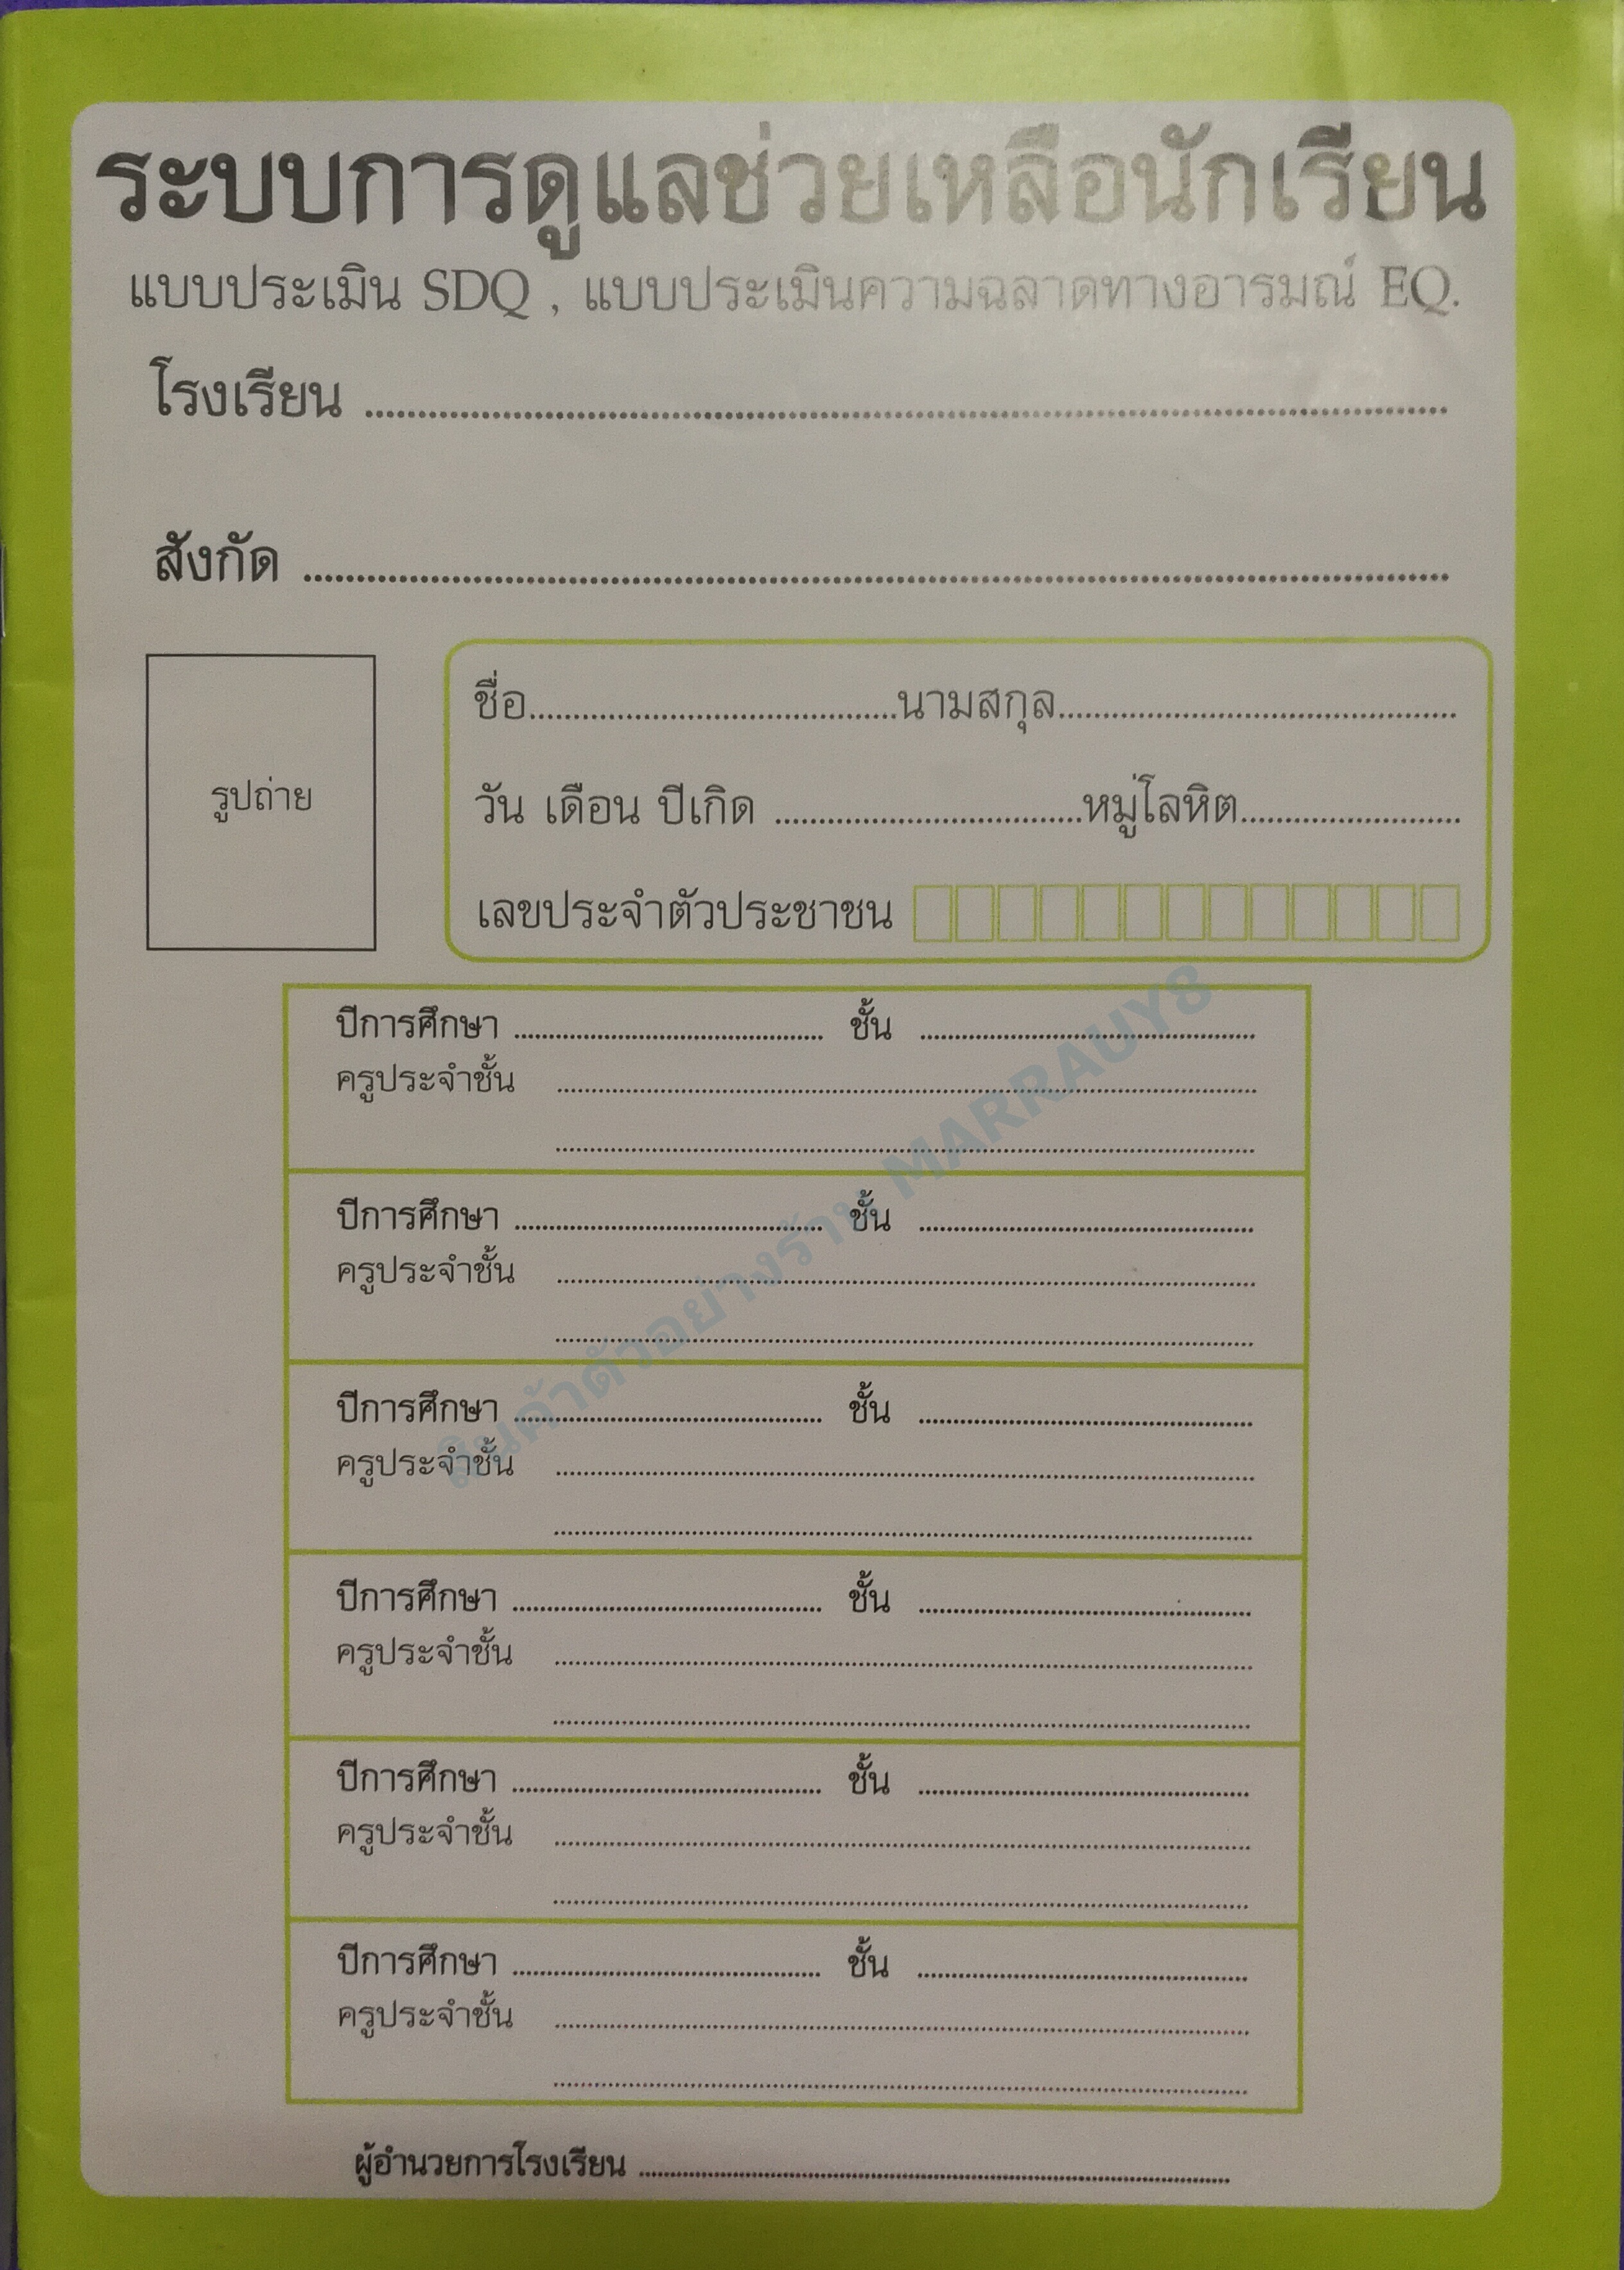 ระบบการดูแลช่วยเหลือนักเรียน
แบบประเมิน SDQ , แบบประเมินความฉลาดทางอารมณ์ EQ.
โรงเรียน ........................................
สังกัด ........................................
รูปถ่าย
ชื่อ....................นามสกุล....................
วัน เดือน ปีเกิด ....................หมู่โลหิต....................
เลขประจำตัวประชาชน
ปีการศึกษา .................... ชั้น ....................
ครูประจำชั้น ........................................
........................................
ปีการศึกษา .................... ชั้น ....................
ครูประจำชั้น ........................................
........................................
ปีการศึกษา .................... ชั้น ....................
ครูประจำชั้น ........................................
........................................
ปีการศึกษา .................... ชั้น ....................
ครูประจำชั้น ........................................
........................................
ปีการศึกษา .................... ชั้น ....................
ครูประจำชั้น ........................................
........................................
ปีการศึกษา .................... ชั้น ....................
ครูประจำชั้น ........................................
........................................
ผู้อำนวยการโรงเรียน ........................................
สินค้าตัวอย่างร้าน MARRAUY8